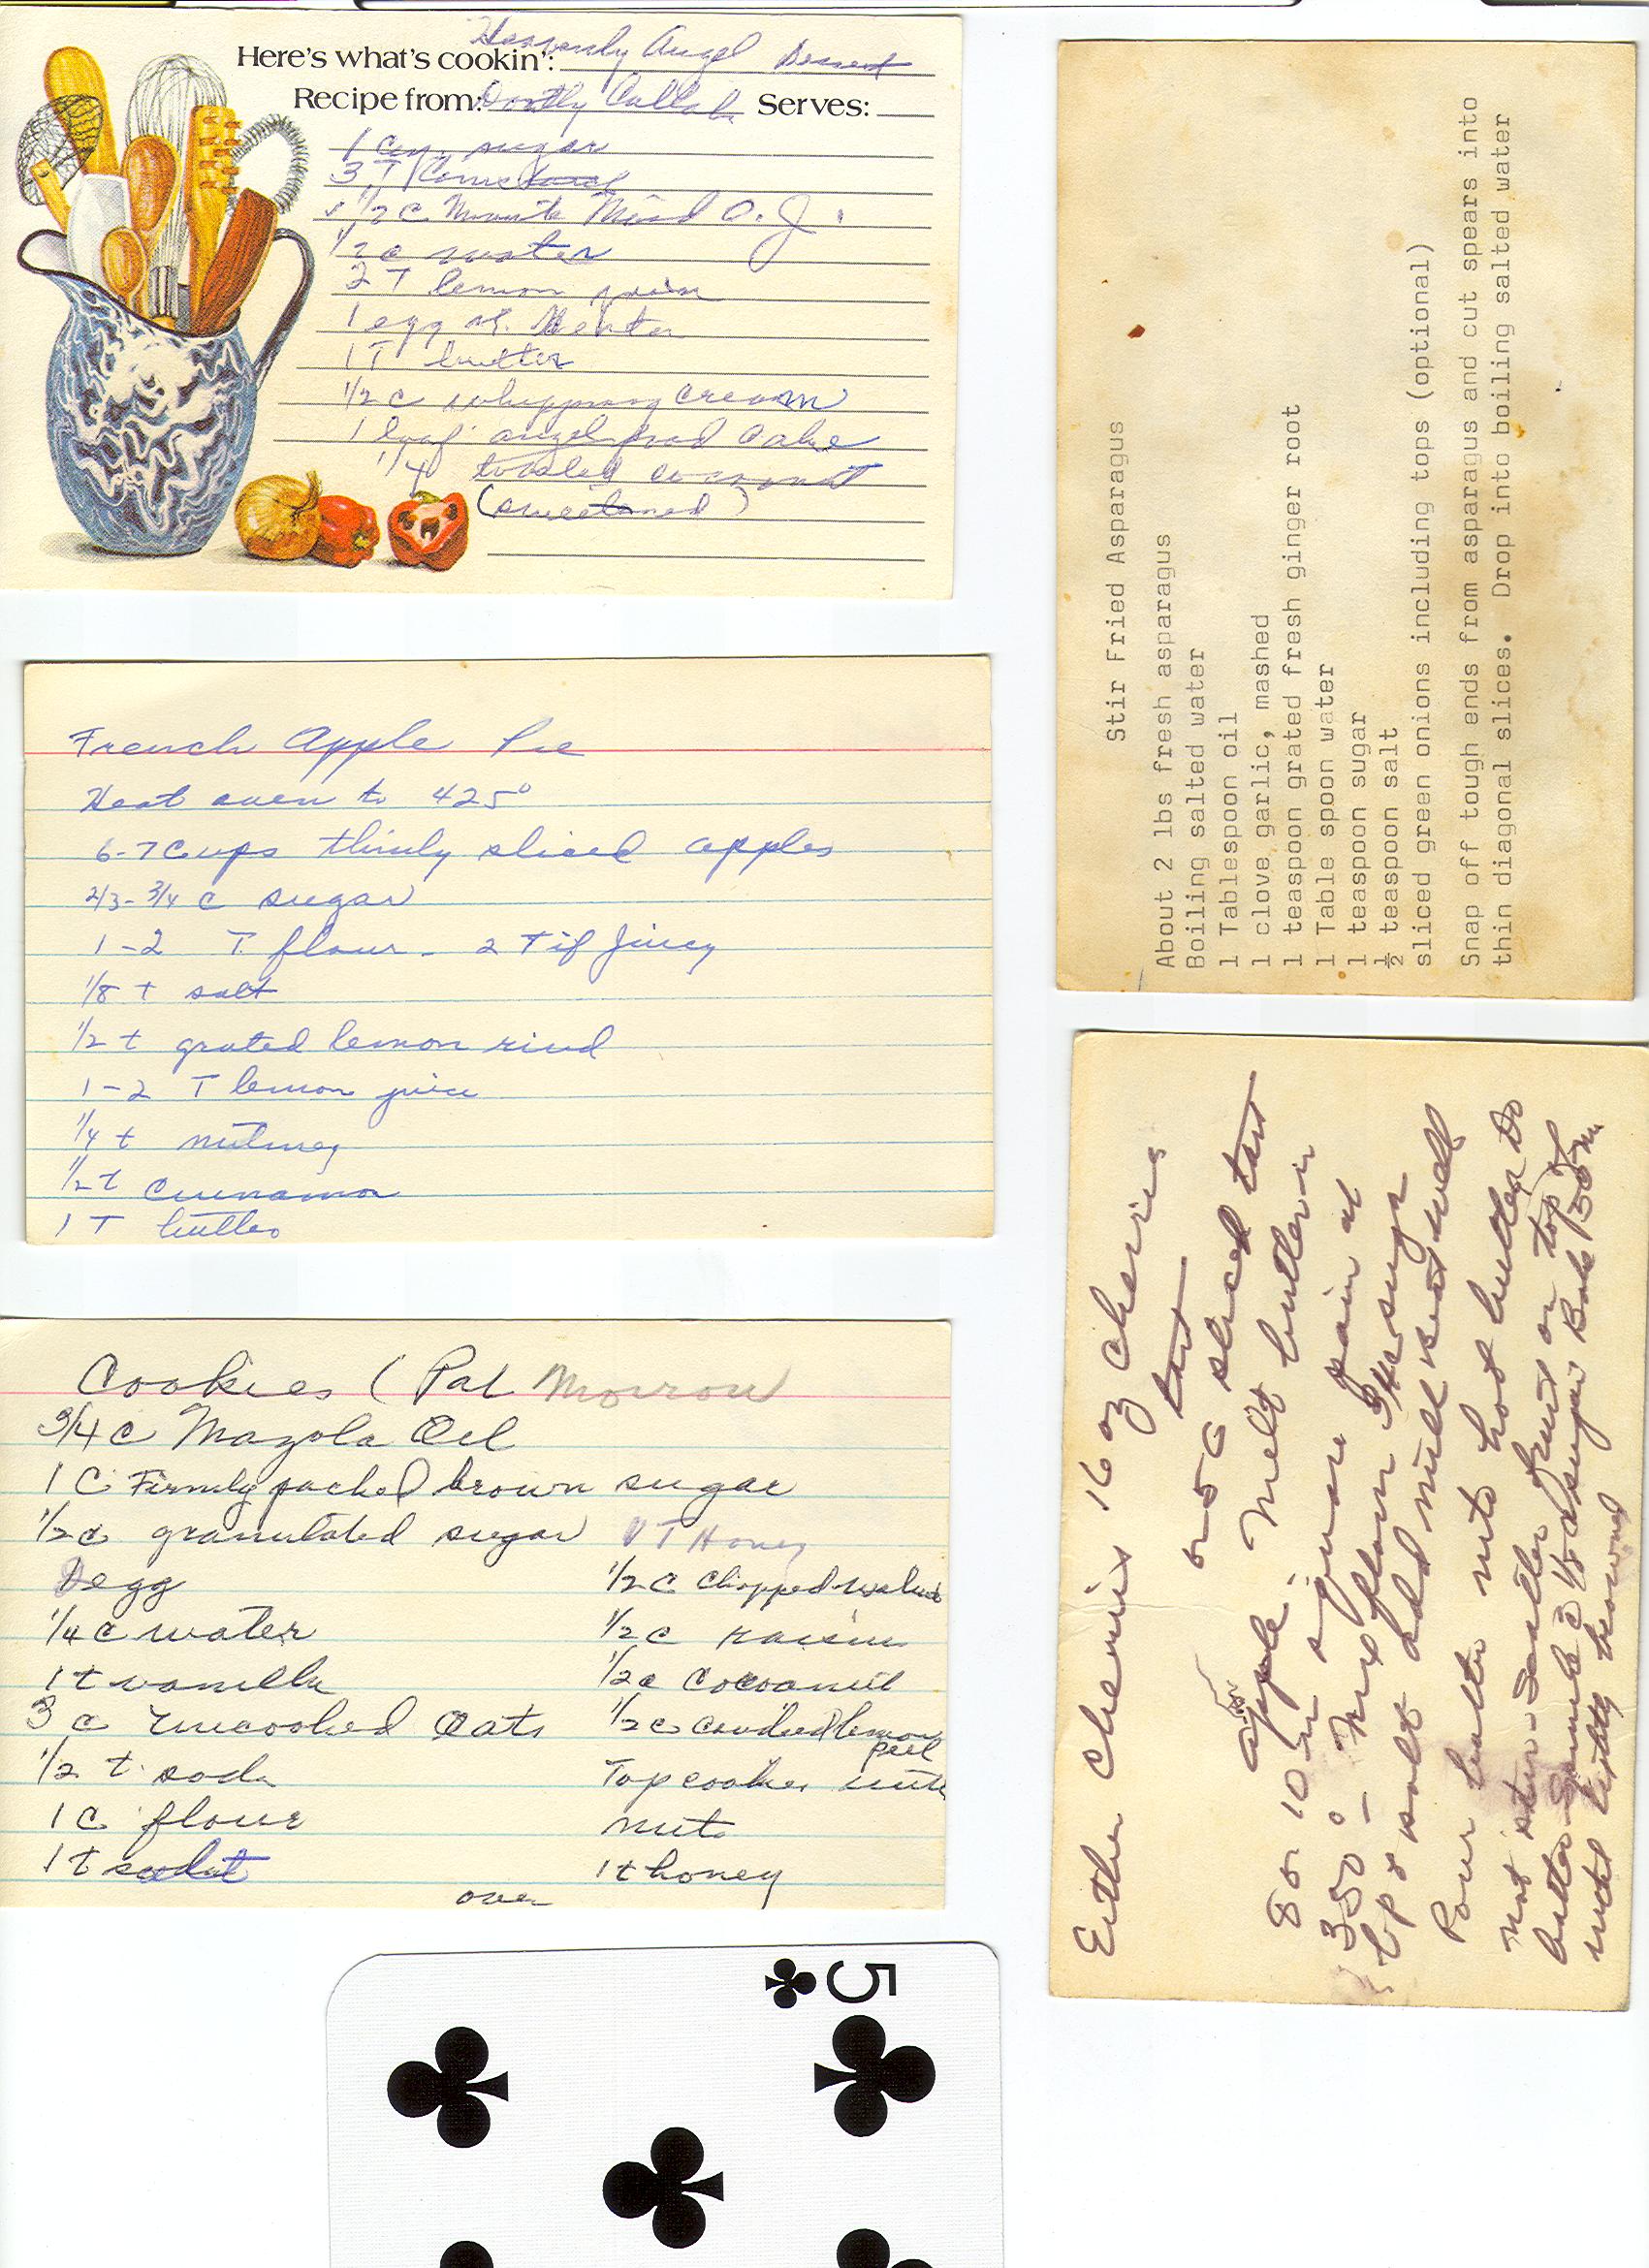 Here's what's cookin': Heavenly Angel Dessert
Recipe from: Serves:
1 cup sugar
3 T Cornstarch
1/2 c Minute Maid O.J.
1/2 c water
2 T lemon juice
1 egg
1 T butter
1/2 c whipping cream
1 loaf angel food cake
1/4 toasted coconut
(sweetened)
French Apple Pie
Heat oven to 425°
6-7 Cups thinly sliced apples
2/3 - 3/4 c sugar
1-2 T. flour - 2 T if juicy
1/8 t salt
1/2 t grated lemon rind
1-2 T lemon juice
1/4 t nutmeg
1/2 t cinnamon
1 T butter
Cookies (Pat Morrow
3/4 c Mazola Oil
1 C Firmly packed brown sugar
1/2 c granulated sugar 1 T Honey
egg
1/4 c water
1 t vanilla
3 c uncooked Oats
1/2 t. soda
1 C flour
1 t salt
1/2 c chopped walnuts
1/2 c raisins
1/2 c Cocoanut
1/2 c candied lemon
peel
Top cookies with
nuts
1 t honey
over
Stir Fried Asparagus
About 2 lbs fresh asparagus
Boiling salted water
1 Tablespoon oil
1 clove garlic, mashed
1 teaspoon grated fresh ginger root
1 Table spoon water
1 teaspoon sugar
½ teaspoon salt
sliced green onions including tops (optional)
Snap off tough ends from asparagus and cut spears into
thin diagonal slices. Drop into boiling salted water
Either cherries 16 oz cherries
tart
or 5 c sliced tart
apple. Melt butter in
8 or 10 in square pan at
350° - Mix flour 3/4 c sugar
bp & salt add milk beat well
Pour batter into hot butter Do
not stir - fruit on top of
batter Sprinkle c 1/3 c sugar Bake 50 m
until lightly browned
5